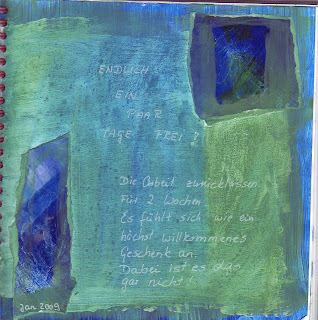 ENDLICH
EIN
PAAR
TAGE FREI!
Die Arbeit zurücklassen
Für 2 Wochen
Es fühlt sich wie ein
höchst willkommenes
Geschenk an.
Dabei ist es das
gar nicht!
Jan. 2009